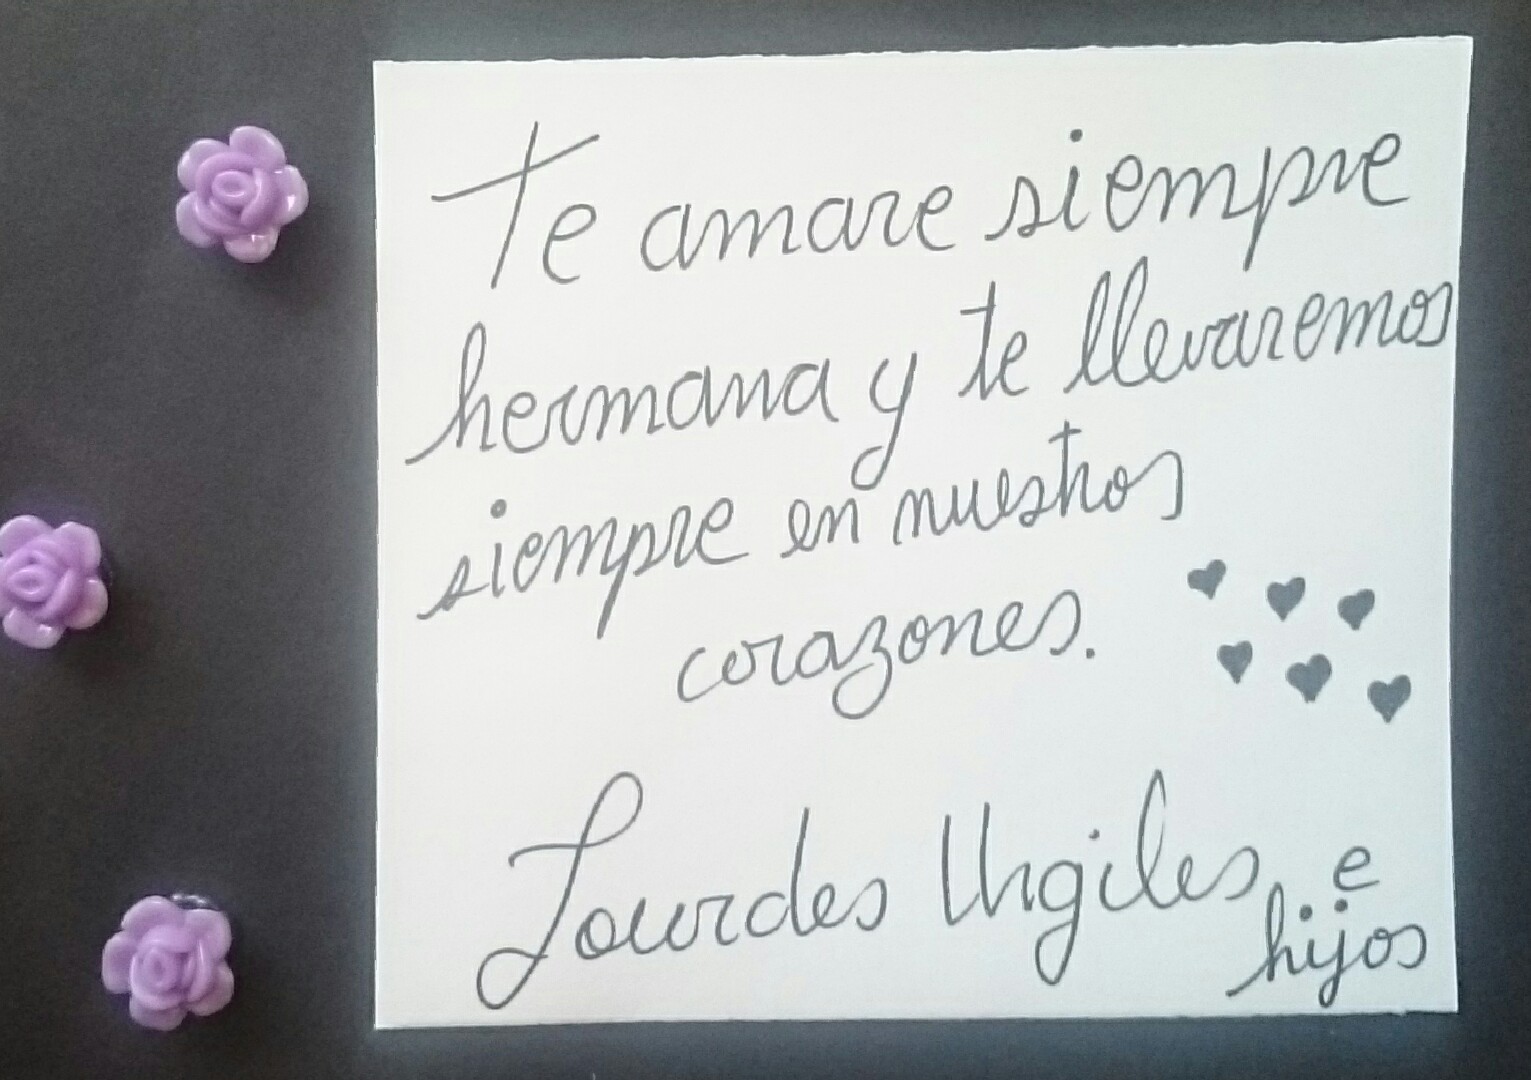 Te amare siempre
hermana y te llevaremos
siempre en nuestros
corazones.
Lourdes Urgiles e
hijos